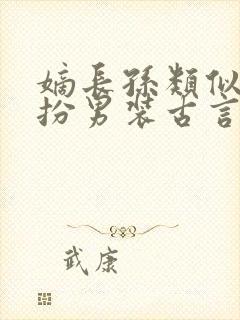 嫡長孫類似
扮男裝古言
武康